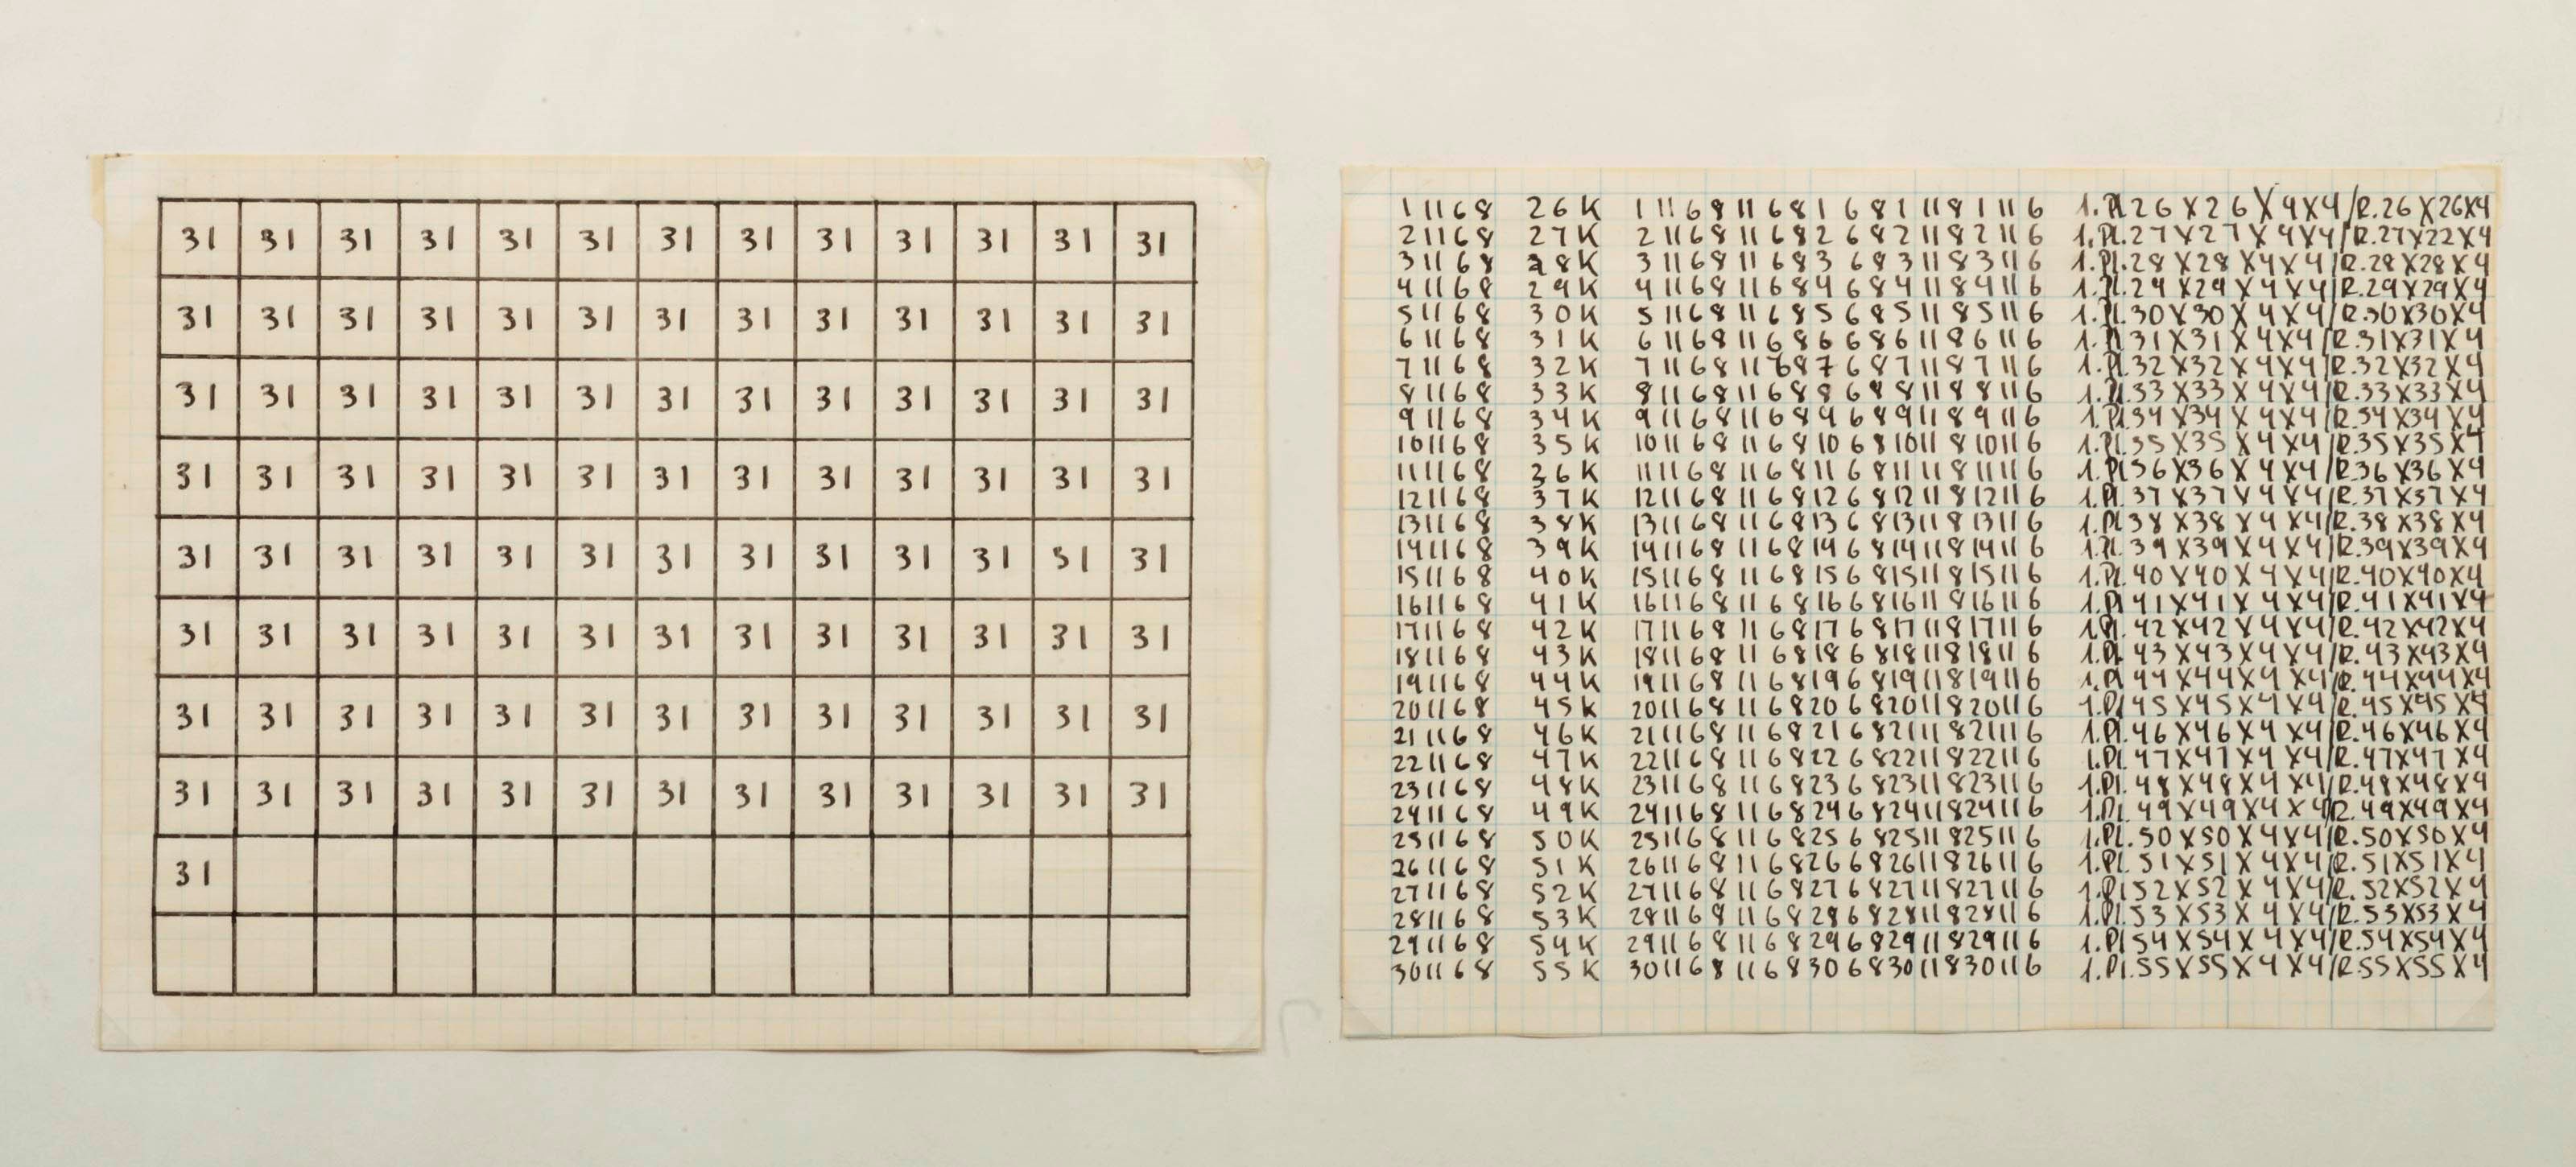 31 31 31 31 31 31 31 31 31 31 31 31 31
31 31 31 31 31 31 31 31 31 31 31 31 31
31 31 31 31 31 31 31 31 31 31 31 31 31
31 31 31 31 31 31 31 31 31 31 31 31 31
31 31 31 31 31 31 31 31 31 31 31 51 31
31 31 31 31 31 31 31 31 31 31 31 31 31
31 31 31 31 31 31 31 31 31 31 31 31 31
31 31 31 31 31 31 31 31 31 31 31 31 31
31
11168 26K 11168116816811181116 1.Pl.26X26X4X4/R.26X26X4
21168 27K 21168116826821182116 1.Pl.27X27X4X4/R.27X22X4
31168 28K 31168116836831183116 1.Pl.28X28X4X4/R.28X28X4
41168 29K 41168116846841184116 1.Pl.29X29X4X4/R.29X29X4
51168 30K 51168116856851185116 1.Pl.30X30X4X4/R.30X30X4
61168 31K 61168116866861186116 1.Pl.31X31X4X4/R.31X31X4
71168 32K 71168116876871187116 1.Pl.32X32X4X4/R.32X32X4
81168 33K 81168116886881188116 1.Pl.33X33X4X4/R.33X33X4
91168 34K 91168116896891189116 1.Pl.34X34X4X4/R.34X34X4
101168 35K 101168116810681011810116 1.Pl.35X35X4X4/R.35X35X4
111168 26K 111168116811681111811116 1.Pl.36X36X4X4/R.36X36X4
121168 37K 121168116812681211812116 1.Pl.37X37X4X4/R.37X37X4
131168 38K 131168116813681311813116 1.Pl.38X38X4X4/R.38X38X4
141168 39K 141168116814681411814116 1.Pl.39X39X4X4/R.39X39X4
151168 40K 151168116815681511815116 1.Pl.40X40X4X4/R.40X40X4
161168 41K 161168116816681611816116 1.Pl.41X41X4X4/R.41X41X4
171168 42K 171168116817681711817116 1.Pl.42X42X4X4/R.42X42X4
181168 43K 181168116818681811818116 1.Pl.43X43X4X4/R.43X43X4
191168 44K 191168116819681911819116 1.Pl.44X44X4X4/R.44X44X4
201168 45K 201168116820682011820116 1.Pl.45X45X4X4/R.45X45X4
211168 46K 211168116821682111821116 1.Pl.46X46X4X4/R.46X46X4
221168 47K 221168116822682211822116 1.Pl.47X47X4X4/R.47X47X4
231168 48K 231168116823682311823116 1.Pl.48X48X4X4/R.48X48X4
241168 49K 241168116824682411824116 1.Pl.49X49X4X4/R.49X49X4
251168 50K 251168116825682511825116 1.Pl.50X50X4X4/R.50X50X4
261168 51K 261168116826682611826116 1.Pl.51X51X4X4/R.51X51X4
271168 52K 271168116827682711827116 1.Pl.52X52X4X4/R.52X52X4
281168 53K 281168116828682811828116 1.Pl.53X53X4X4/R.53X53X4
291168 54K 291168116829682911829116 1.Pl.54X54X4X4/R.54X54X4
301168 55K 301168116830683011830116 1.Pl.55X55X4X4/R.55X55X4